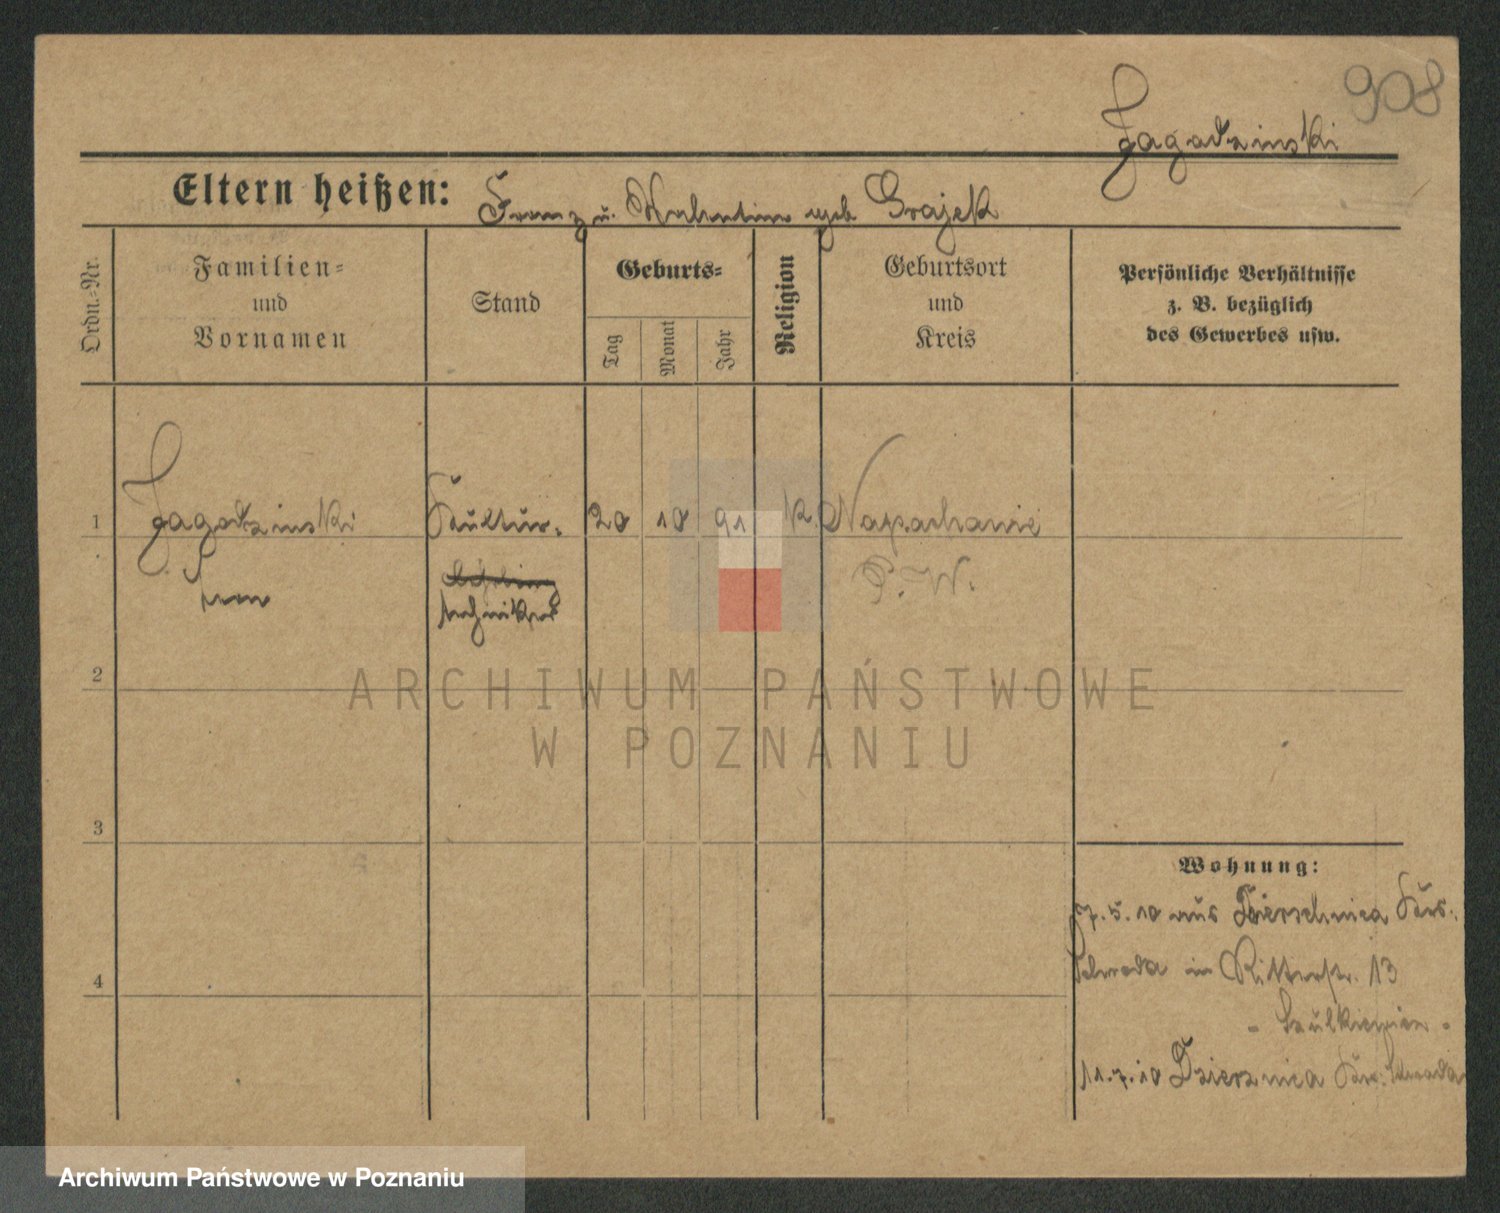 908
Jagodzinski
Eltern heißen: Franz u. Valentine geb Grajek
Ordn.-Nr.
Familien-
und
Vornamen
Stand
Geburts-
Tag
Monat
Jahr
Religion
Geburtsort
und
Kreis
Persönliche Verhältnisse
z. B. bezüglich
des Gewerbes usw.
1 Jagodzinski Kultur- 20 10 91 k. Napachanie
P. W.
techniker
2
3
4
Wohnung:
7.5.10 aus Dzierschnica Krs.
Schroda in Ritterstr. 13
11.7.10 Dzierznica Krs. Schroda
ARCHIWUM PAŃSTWOWE
W POZNANIU
Archiwum Państwowe w Poznaniu